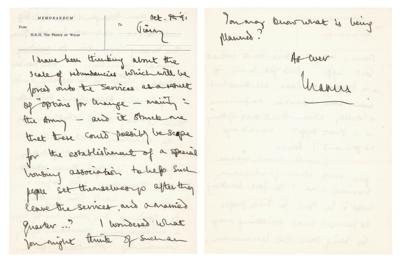 MEMORANDUM
From
H.R.H. The Prince of Wales
To
Oct.
I have been thinking about the
scale of redundancies which will be
forced onto the Services as a result
of "Options for Change" – mainly in
the Army – and it struck me
that there could possibly be scope
for the establishment of a special
housing association to help such
people set themselves up after they
leave the services, and a married
quarter...? I wondered what
you might think of such an
You may know what is being
planned?
As ever
Charles